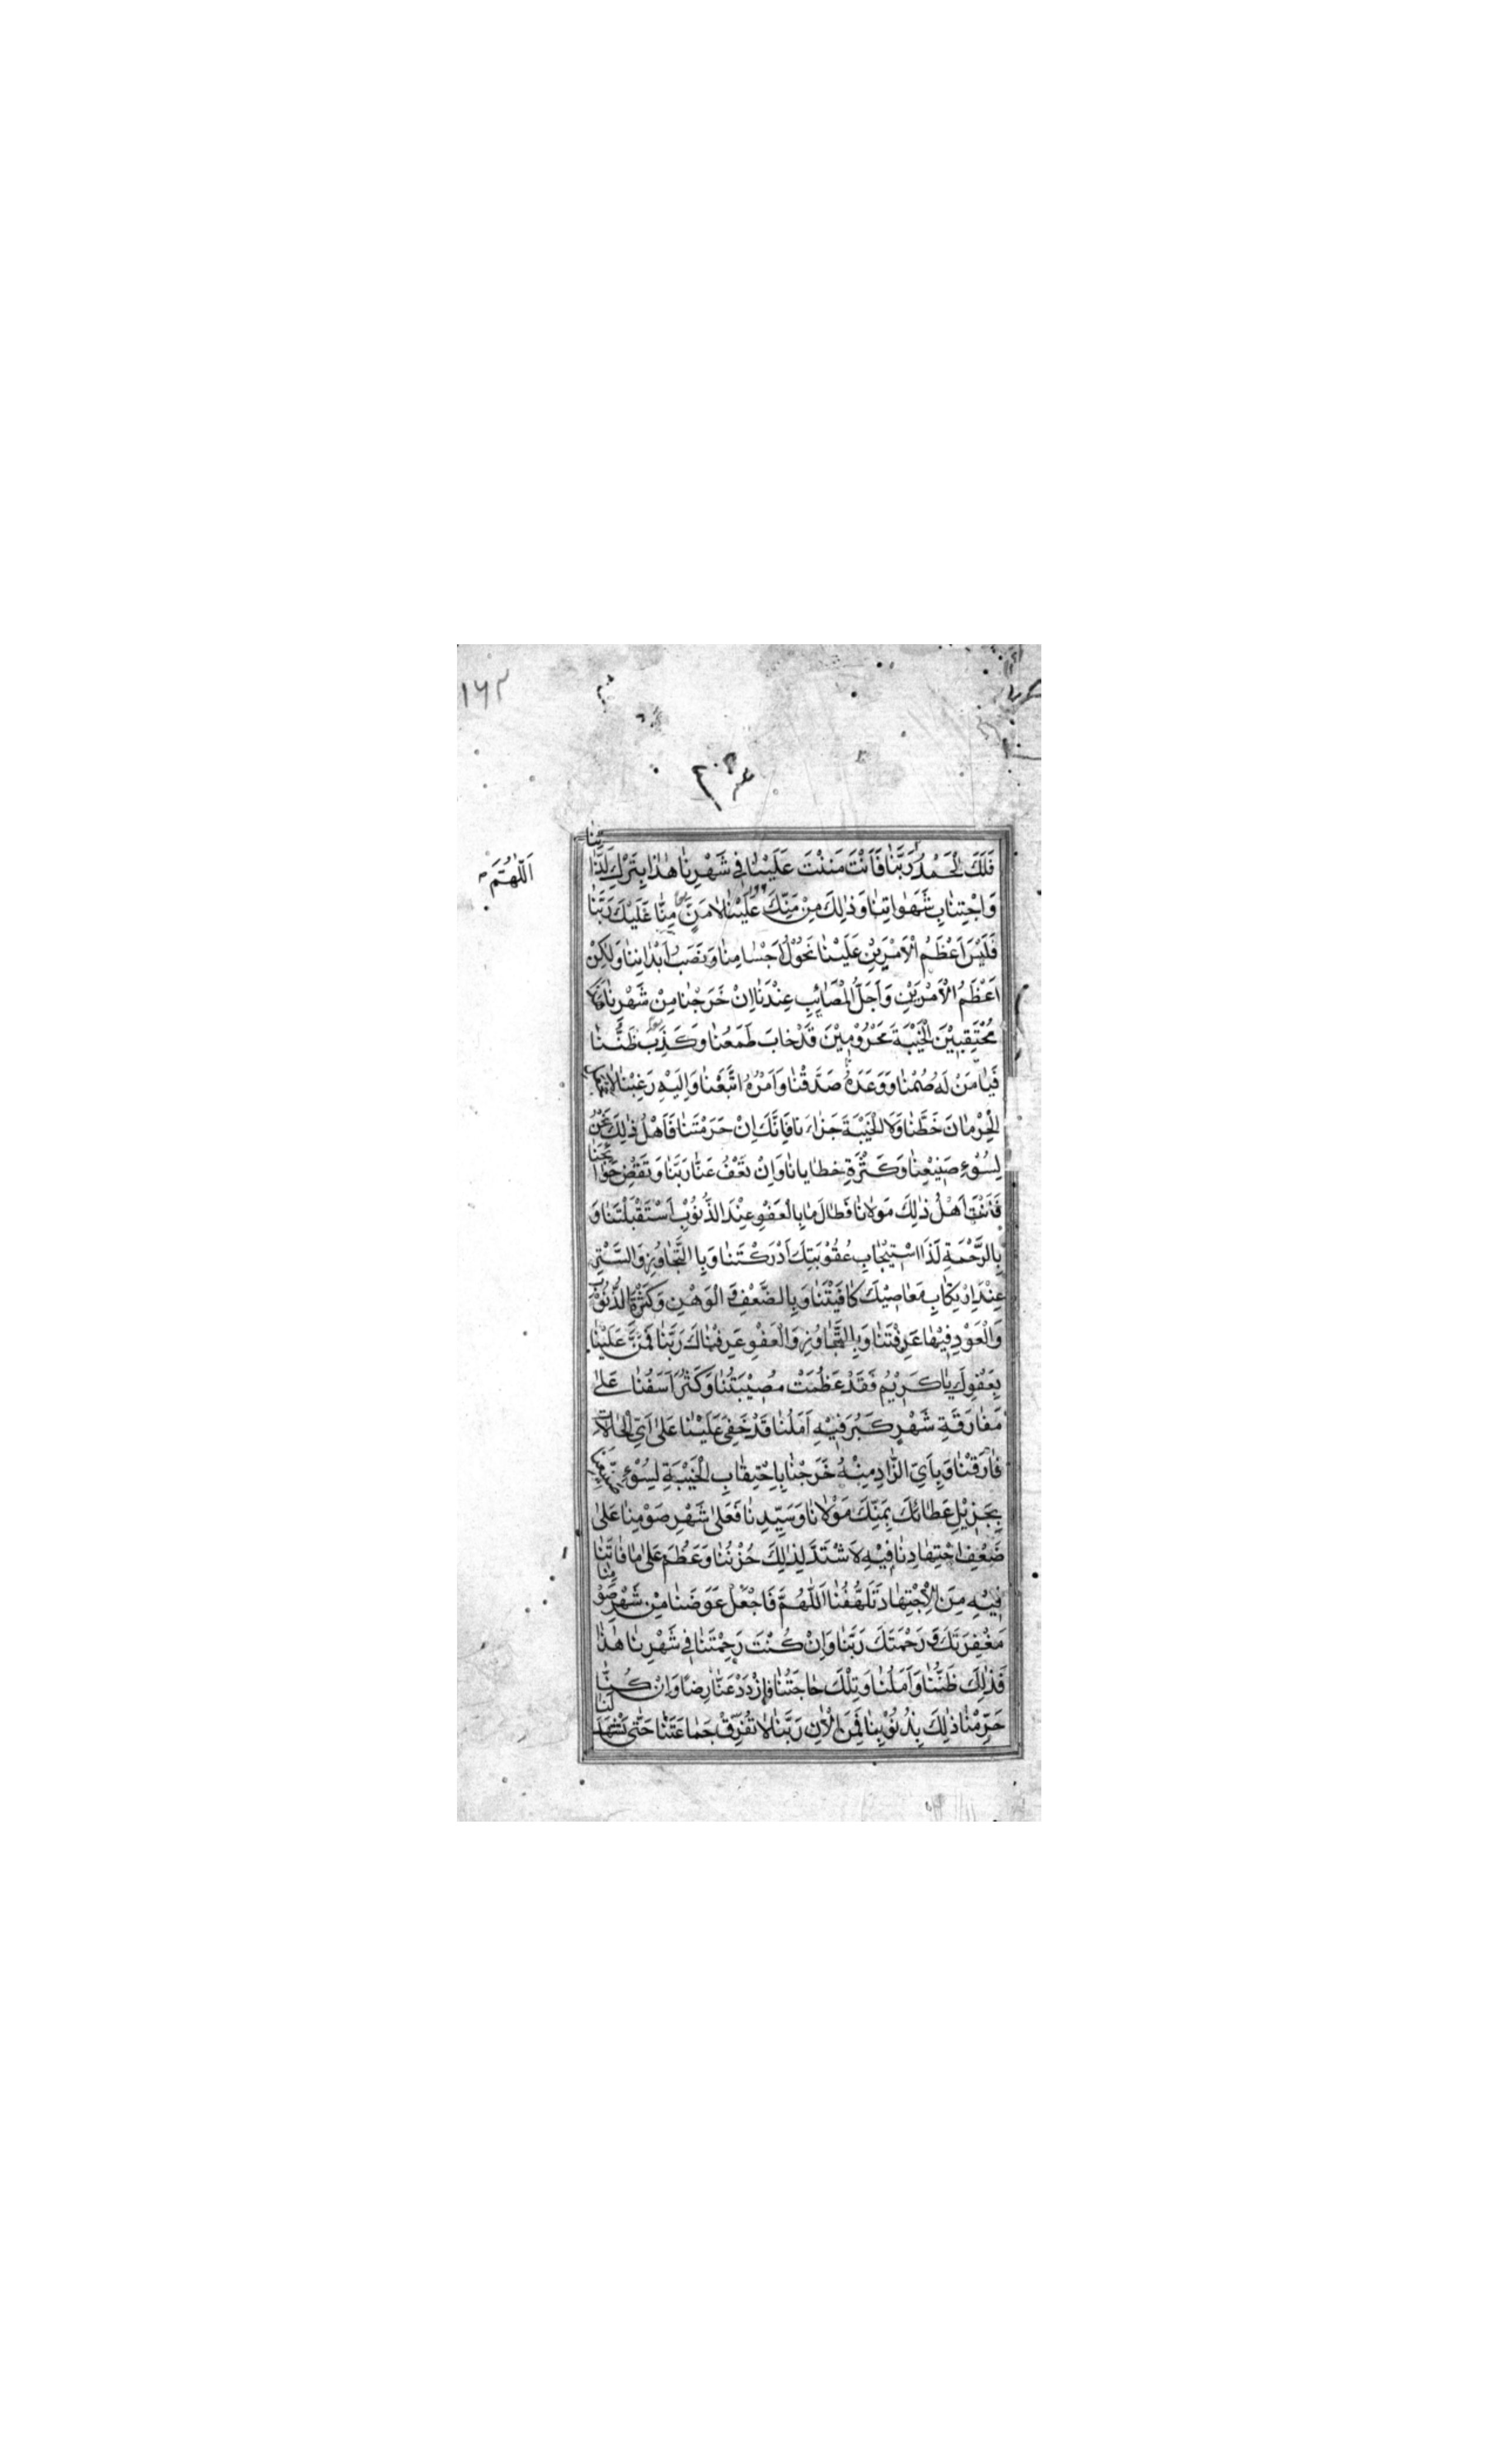 ١٦٣
٢٠٣
اَللّٰهُمَّ
فَلَكَ الْحَمْدُ رَبَّنٰا فَاَنْتَ مَنَنْتَ عَلَيْنٰا فِي شَهْرِنٰا هٰذٰا بِتَرْكِ لَذّٰاتِنٰا
وَاجْتِنٰابِ شَهَوٰاتِنٰا وَذٰلِكَ مِنْ مَنِّكَ عَلَيْنٰا لاٰ مَنَّ مِنّٰا عَلَيْكَ رَبَّنٰا
فَلَيْسَ اَعْظَمُ الْاَمْرَيْنِ عَلَيْنٰا نُحُوْلُ اَجْسٰامِنٰا وَنَصَبُ اَبْدٰانِنٰا وَلٰكِنْ
اَعْظَمُ الْاَمْرَيْنِ وَاَجَلُّ الْمَصٰائِبِ عِنْدَنٰا اِنْ خَرَجْنٰا مِنْ شَهْرِنٰا هٰذٰا
مُحْتَقِبِيْنَ الْخَيْبَةَ مَحْرُوْمِيْنَ قَدْ خٰابَ طَمَعُنٰا وَكَذِبَ ظَنُّنٰا
فَيٰا مَنْ لَهُ صُمْنٰا وَوَعْدَهُ صَدَّقْنٰا وَاَمْرَهُ اتَّبَعْنٰا وَاِلَيْهِ رَغِبْنٰا لاٰ تَجْعَلِ
الْحِرْمٰانَ حَظَّنٰا وَلاَ الْخَيْبَةَ جَزٰاءَنٰا فَاِنَّكَ اِنْ حَرَمْتَنٰا فَاَهْلُ ذٰلِكَ نَحْنُ
لِسُوْءِ صَنِيْعِنٰا وَكَثْرَةِ خَطٰايٰانٰا وَاِنْ تَعْفُ عَنّٰا رَبَّنٰا وَتَقْضِ حَوٰائِجَنٰا
فَاَنْتَ اَهْلُ ذٰلِكَ مَوْلاٰنٰا فَطٰالَ مٰا بِالْعَفْوِ عِنْدَ الذُّنُوْبِ اسْتَقْبَلْتَنٰا وَ
بِالرَّحْمَةِ لَذَا اسْتِيْجٰابِ عُقُوْبَتِكَ اَدْرَكْتَنٰا وَبِالتَّجٰاوُزِ وَالسَّتْرِ
عِنْدَ ارْتِكٰابِ مَعٰاصِيْكَ كٰافَيْتَنٰا وَبِالضَّعْفِ وَ الْوَهْنِ وَكَثْرَةِ الذُّنُوْبِ
وَالْعَوْدِ فِيْهٰا عَرَفْتَنٰا وَبِالتَّجٰاوُزِ وَالْعَفْوِ عَرَفْنٰاكَ رَبَّنٰا فَمُنَّ عَلَيْنٰا
بِعَفْوِكَ يٰا كَرِيْمُ فَقَدْ عَظُمَتْ مُصِيْبَتُنٰا وَكَثُرَ اَسَفُنٰا عَلىٰ
مُفٰارَقَةِ شَهْرٍ كَبُرَ فِيْهِ اَمَلُنٰا قَدْ خَفِيَ عَلَيْنٰا عَلىٰ اَيِّ الْحٰالاٰتِ
فٰارَقْنٰا وَبِاَيِّ الزّٰادِ مِنْهُ خَرَجْنٰا بِاحْتِقٰابِ الْخَيْبَةِ لِسُوْءِ صَنِيْعِنٰا
بِجَزِيْلِ عَطٰائِكَ بِمَنِّكَ مَوْلاٰنٰا وَسَيِّدِنٰا فَعَلىٰ شَهْرِ صَوْمِنٰا عَلىٰ
ضَعْفِ اجْتِهٰادِنٰا فِيْهِ لاَشْتَدَّ لِذٰلِكَ حُزْنُنٰا وَعَظُمَ عَلىٰ مٰا فٰاتَنٰا
فِيْهِ مِنَ الْاِجْتِهٰادِ تَلَهُّفُنٰا اَللّٰهُمَّ فَاجْعَلْ عِوَضَنٰا مِنْ شَهْرِ صَوْمِنٰا
مَغْفِرَتَكَ وَ رَحْمَتَكَ رَبَّنٰا وَاِنْ كُنْتَ رَحِمْتَنٰا فِي شَهْرِنٰا هٰذٰا
فَذٰلِكَ ظَنُّنٰا وَاَمَلُنٰا وَتِلْكَ حٰاجَتُنٰا فَازْدَدْ عَنّٰا رِضًا وَاِنْ كُنّٰا
حُرِّمْنٰا ذٰلِكَ بِذُنُوْبِنٰا فَمِنَ الْاٰنِ رَبَّنٰا لاٰ تُفَرِّقْ جَمٰاعَتَنٰا حَتّٰى تَشْهَدَ لَنٰا